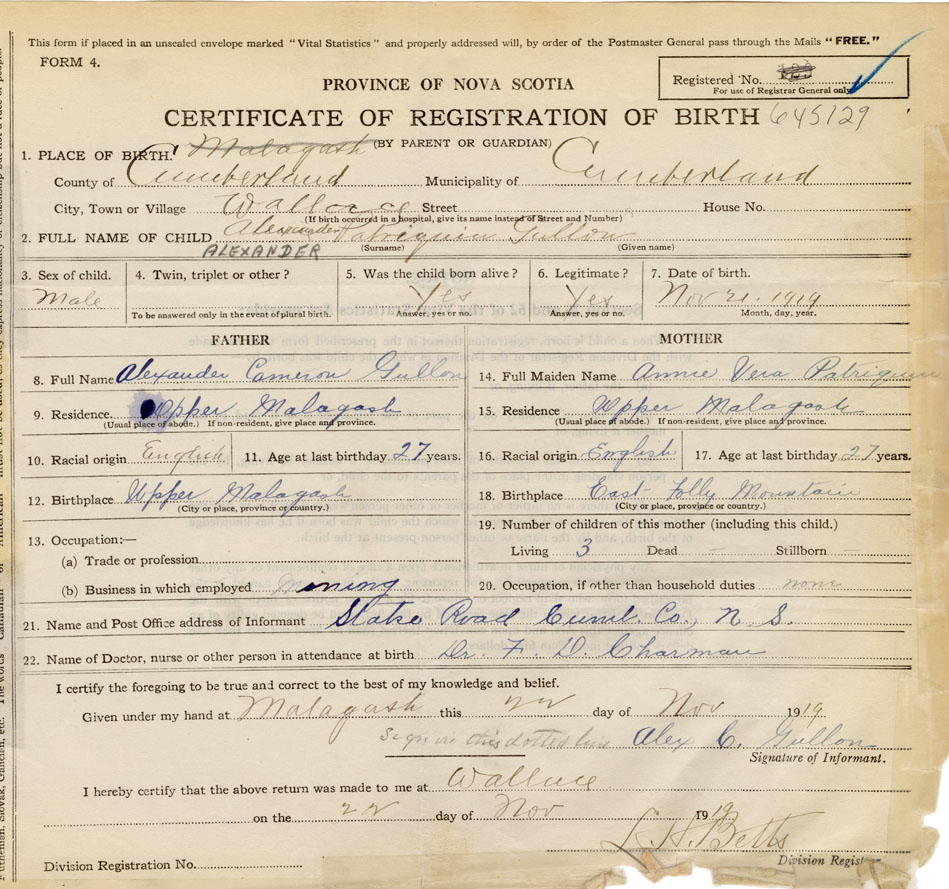 This form if placed in an unsealed envelope marked "Vital Statistics" and properly addressed will, by order of the Postmaster General pass through the Mails "FREE."
FORM 4.
Registered No.
For use of Registrar General only
PROVINCE OF NOVA SCOTIA
CERTIFICATE OF REGISTRATION OF BIRTH 645129
(BY PARENT OR GUARDIAN)
1. PLACE OF BIRTH. Malagash
County of Cumberland Municipality of Cumberland
City, Town or Village Wallace Street House No.
(If birth occurred in a hospital, give its name instead of Street and Number)
2. FULL NAME OF CHILD Alexander Patriquin Gullon
(Surname) (Given name)
ALEXANDER
3. Sex of child. Male
4. Twin, triplet or other?
To be answered only in the event of plural birth.
5. Was the child born alive? Yes
Answer, yes or no.
6. Legitimate? Yes
Answer, yes or no.
7. Date of birth. Nov 21. 1919
Month, day, year.
FATHER
8. Full Name Alexander Cameron Gullon
9. Residence. Upper Malagash
(Usual place of abode.) If non-resident, give place and province.
10. Racial origin English 11. Age at last birthday 27 years.
12. Birthplace Upper Malagash
(City or place, province or country.)
13. Occupation:—
(a) Trade or profession
(b) Business in which employed mining
MOTHER
14. Full Maiden Name Annie Vera Patriquin
15. Residence Upper Malagash
(Usual place of abode.) If non-resident, give place and province.
16. Racial origin English 17. Age at last birthday 27 years.
18. Birthplace East Folly Mountain
(City or place, province or country.)
19. Number of children of this mother (including this child.)
Living 3 Dead — Stillborn —
20. Occupation, if other than household duties none
21. Name and Post Office address of Informant Stake Road Cumb. Co., N. S.
22. Name of Doctor, nurse or other person in attendance at birth Dr. F. D. Charman
I certify the foregoing to be true and correct to the best of my knowledge and belief.
Given under my hand at Malagash this 22 day of Nov 1919.
Sign on this dotted line Alex C. Gullon
Signature of Informant.
I hereby certify that the above return was made to me at Wallace
on the 22 day of Nov 1919
L. H. Betts
Division Registration No. Division Regist